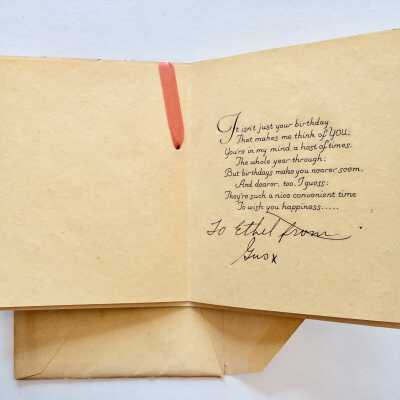 It isn't just your birthday
That makes me think of YOU;
You're in my mind a host of times.
The whole year through;
But birthdays make you nearer seem,
And dearer, too, I guess;
They're such a nice convenient time
To wish you happiness.....
To Ethel from
Gus x